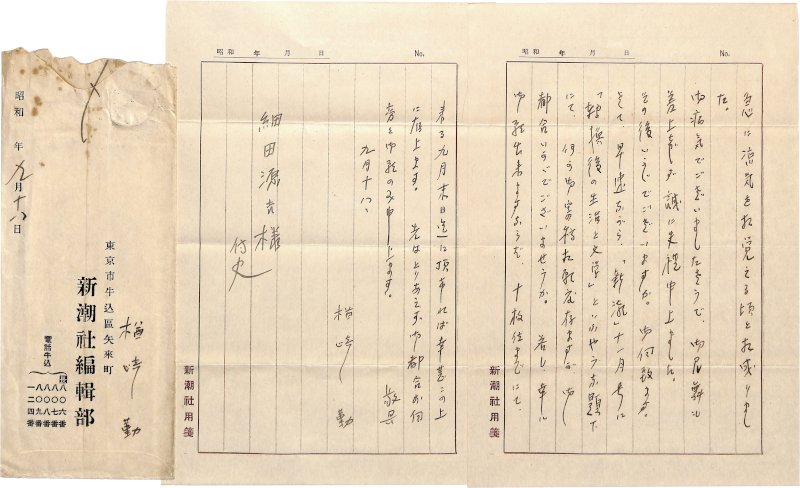 昭和 年 九月十八日
東京市牛込區矢來町
新潮社編輯部
楢崎 勤
電話牛込
八〇六番
八〇七番
八〇八番
八〇九番
一二四番
昭和 年 月 日 No.
急に涼気を相覚える頃と相成りまし
た。
御病気でございましたさうで、御見舞も
差上げもせず誠に失禮申上ました。
その後いかゞでございますか。御伺致します。
さて、早速ながら、「新潮」十一月号に
「轉換後の生活と文学」といふやうな題下
にて、何か御寄稿相願度存ますが御
都合いかゞでございませうか。若し幸に
御願出来ますなら、十枚位までにて、
新潮社用箋
昭和 年 月 日 No.
来る九月末日迄に頂ければ幸甚この上
に存上ます。先はとりあへず御都合お伺
旁々御願のみ申します。 敬具
九月十八日
楢崎 勤
細田源吉様
侍史
新潮社用箋